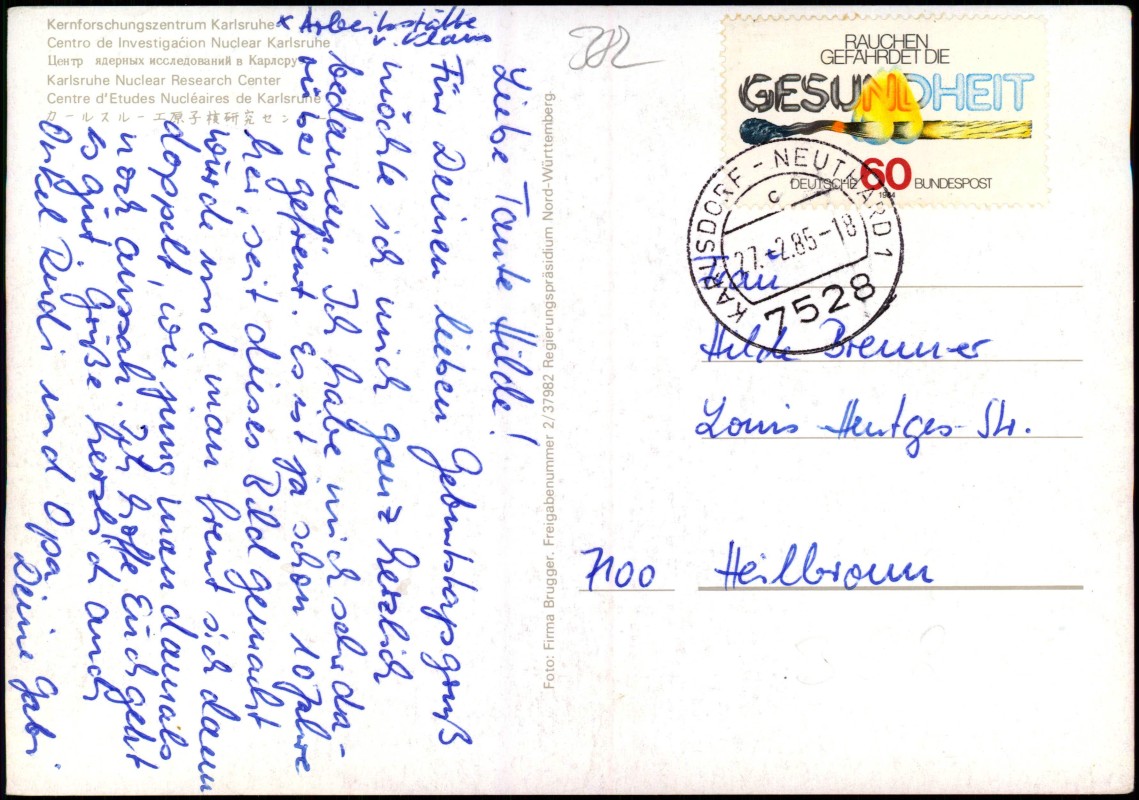 Kernforschungszentrum Karlsruhe
Centro de Investigación Nuclear Karlsruhe
Центр ядерных исследований в Карлсру
Karlsruhe Nuclear Research Center
Centre d'Etudes Nucléaires de Karlsruhe
カールスルーエ原子核研究セン
x Arbeitsstätte
v. Klaus
Liebe Tante Hilde!
Für Deinen lieben Geburtstagsgruß
möchte ich mich ganz herzlich
bedanken. Ich habe mich sehr da-
rüber gefreut. Es ist ja schon 10 Jahre
her, seit dieses Bild gemacht
wurde und man freut sich dann
doppelt, wie jung man damals
noch aussah. Ich hoffe Euch geht
es gut. Grüße herzlich auch
Onkel Rudi und Opa
Deine Gabi
Foto: Firma Brugger. Freigabenummer 2/37982 Regierungspräsidium Nord-Württemberg.
382
RAUCHEN
GEFÄHRDET DIE
GESUNDHEIT
DEUTSCHE 60 BUNDESPOST
1984
KARLSDORF-NEUTHARD 1
c
27.-2.85-18
7528
Frau
Hilde Brenner
Louis Hentges-Str.
7100 Heilbronn